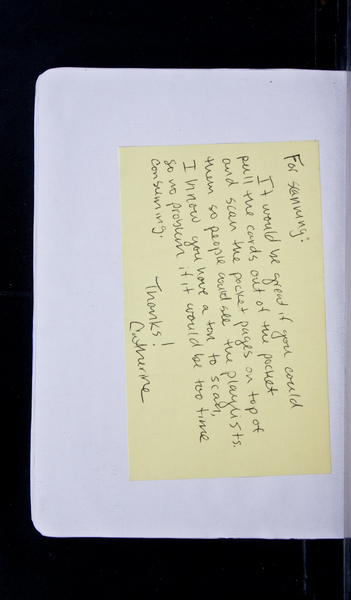 For scanning:
It would be great if you could
pull the cards out of the pocket
and scan the pocket pages on top of
them so people could see the playlists.
I know you have a ton to scan,
so no problem if it would be too time
consuming.
Thanks!
Catherine